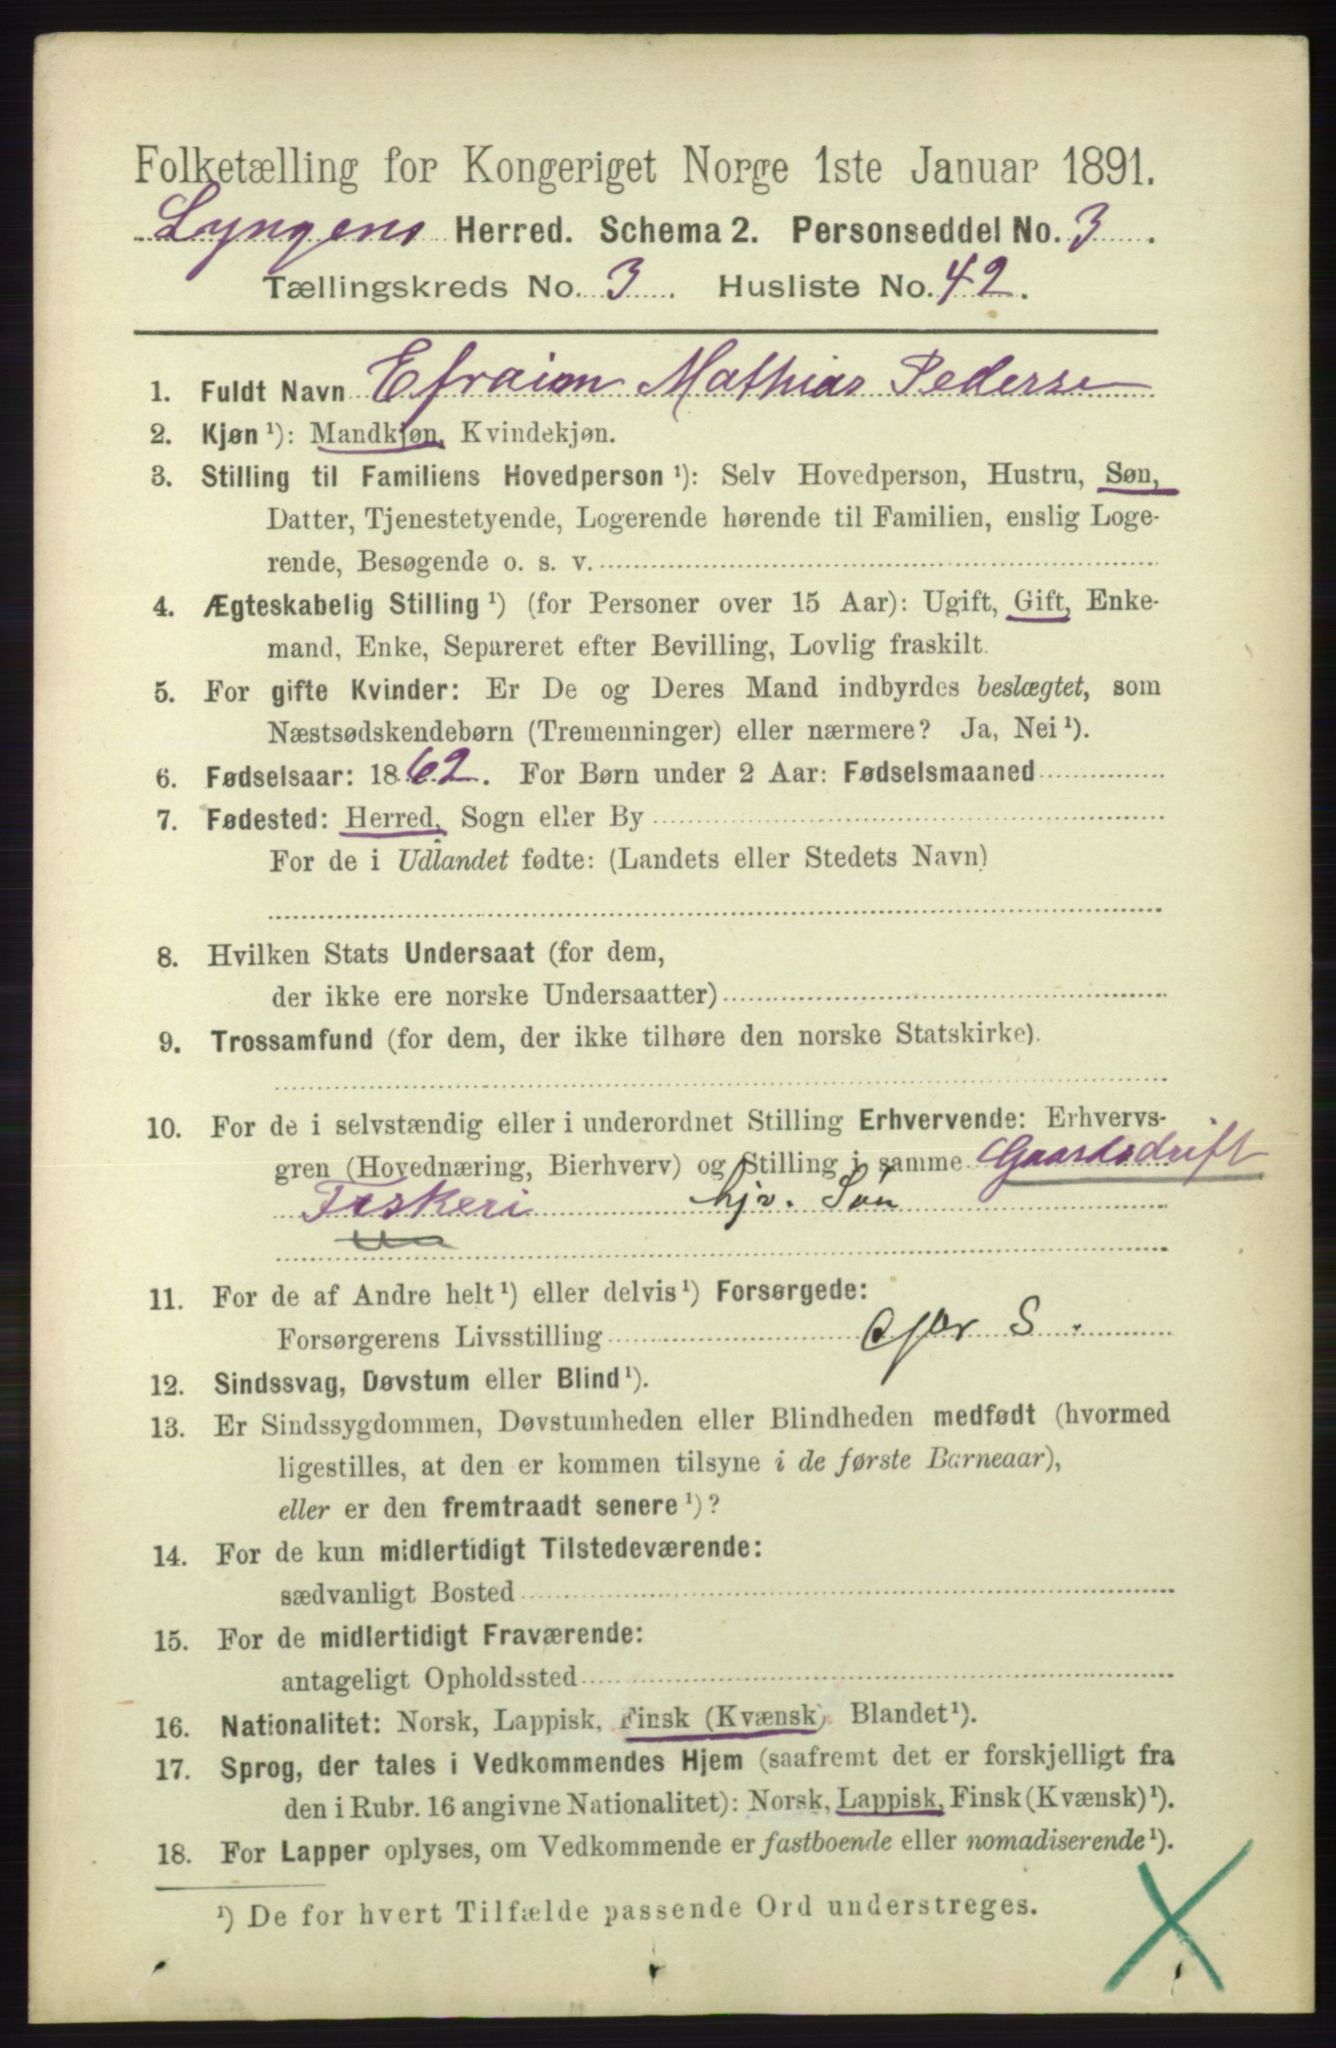 Folketælling for Kongeriget Norge 1ste Januar 1891.
Lyngens Herred. Schema 2. Personseddel No. 3.
Tællingskreds No. 3. Husliste No. 42.
1. Fuldt Navn Efraim Mathias Pederse
2. Kjøn ¹): Mandkjøn, Kvindekjøn.
3. Stilling til Familiens Hovedperson ¹): Selv Hovedperson, Hustru, Søn,
Datter, Tjenestetyende, Logerende hørende til Familien, enslig Loge-
rende, Besøgende o. s. v.
4. Ægteskabelig Stilling ¹) (for Personer over 15 Aar): Ugift, Gift, Enke-
mand, Enke, Separeret efter Bevilling, Lovlig fraskilt.
5. For gifte Kvinder: Er De og Deres Mand indbyrdes beslægtet, som
Næstsødskendebørn (Tremenninger) eller nærmere? Ja, Nei ¹).
6. Fødselsaar: 1862. For Børn under 2 Aar: Fødselsmaaned
7. Fødested: Herred, Sogn eller By
For de i Udlandet fødte: (Landets eller Stedets Navn)
8. Hvilken Stats Undersaat (for dem,
der ikke ere norske Undersaatter)
9. Trossamfund (for dem, der ikke tilhøre den norske Statskirke).
10. For de i selvstændig eller i underordnet Stilling Erhvervende: Erhvervs-
gren (Hovednæring, Bierhverv) og Stilling i samme Gaardsdrift
Fiskeri hjv. Søn
11. For de af Andre helt ¹) eller delvis ¹) Forsørgede:
Forsørgerens Livsstilling
12. Sindssvag, Døvstum eller Blind ¹).
13. Er Sindssygdommen, Døvstumheden eller Blindheden medfødt (hvormed
ligestilles, at den er kommen tilsyne i de første Barneaar),
eller er den fremtraadt senere ¹)?
14. For de kun midlertidigt Tilstedeværende:
sædvanligt Bosted
15. For de midlertidigt Fraværende:
antageligt Opholdssted
16. Nationalitet: Norsk, Lappisk, Finsk (Kvænsk) Blandet ¹).
17. Sprog, der tales i Vedkommendes Hjem (saafremt det er forskjelligt fra
den i Rubr. 16 angivne Nationalitet): Norsk, Lappisk, Finsk (Kvænsk) ¹).
18. For Lapper oplyses, om Vedkommende er fastboende eller nomadiserende ¹).
¹) De for hvert Tilfælde passende Ord understreges.